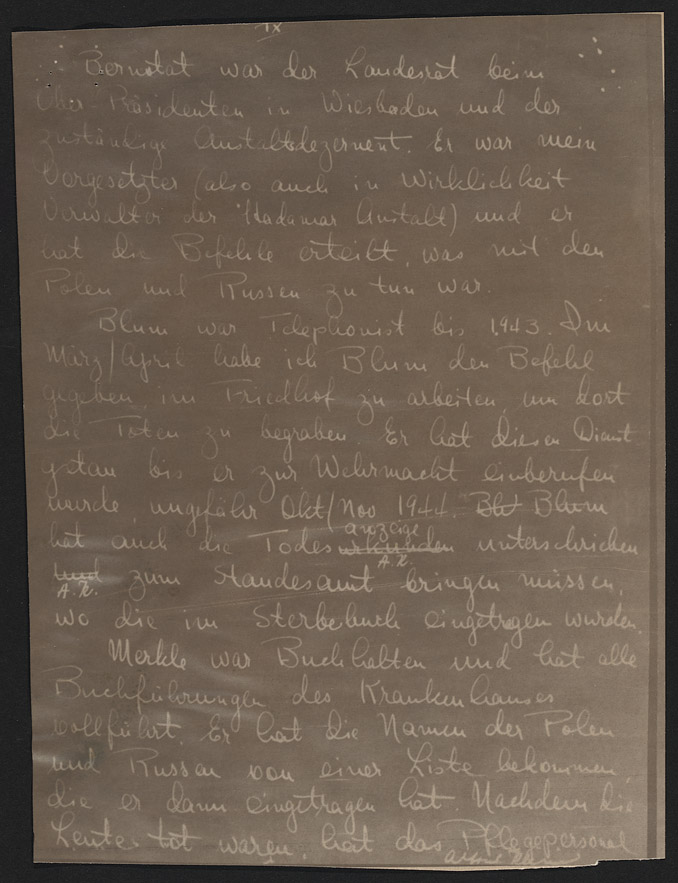 IX
Bernotat war der Landesrat beim
Ober-Präsidenten in Wiesbaden und der
zuständige Anstaltsdezernent. Er war mein
Vorgesetzter (also auch in Wirklichkeit
Verwalter der Hadamar Anstalt) und er
hat die Befehle erteilt, was mit den
Polen und Russen zu tun war.
Blum war Telephonist bis 1943. Im
März/April habe ich Blum den Befehl
gegeben, im Friedhof zu arbeiten, um dort
die Toten zu begraben. Er hat diesen Dienst
getan bis er zur Wehrmacht einberufen
wurde, ungefähr Okt/Nov 1944. Bl Blum
anzeige
hat auch die Todesurkunden unterschrieben
A.K.
und zum Standesamt bringen müssen,
A.K.
wo die im Sterbebuch eingetragen wurden.
Merkle war Buchhalten und hat alle
Buchführungen des Krankenhauses
vollführt. Er hat die Namen der Polen
und Russen von einer Liste bekommen,
die er dann eingetragen hat. Nachdem die
Leute tot waren, hat das Pflegepersonal